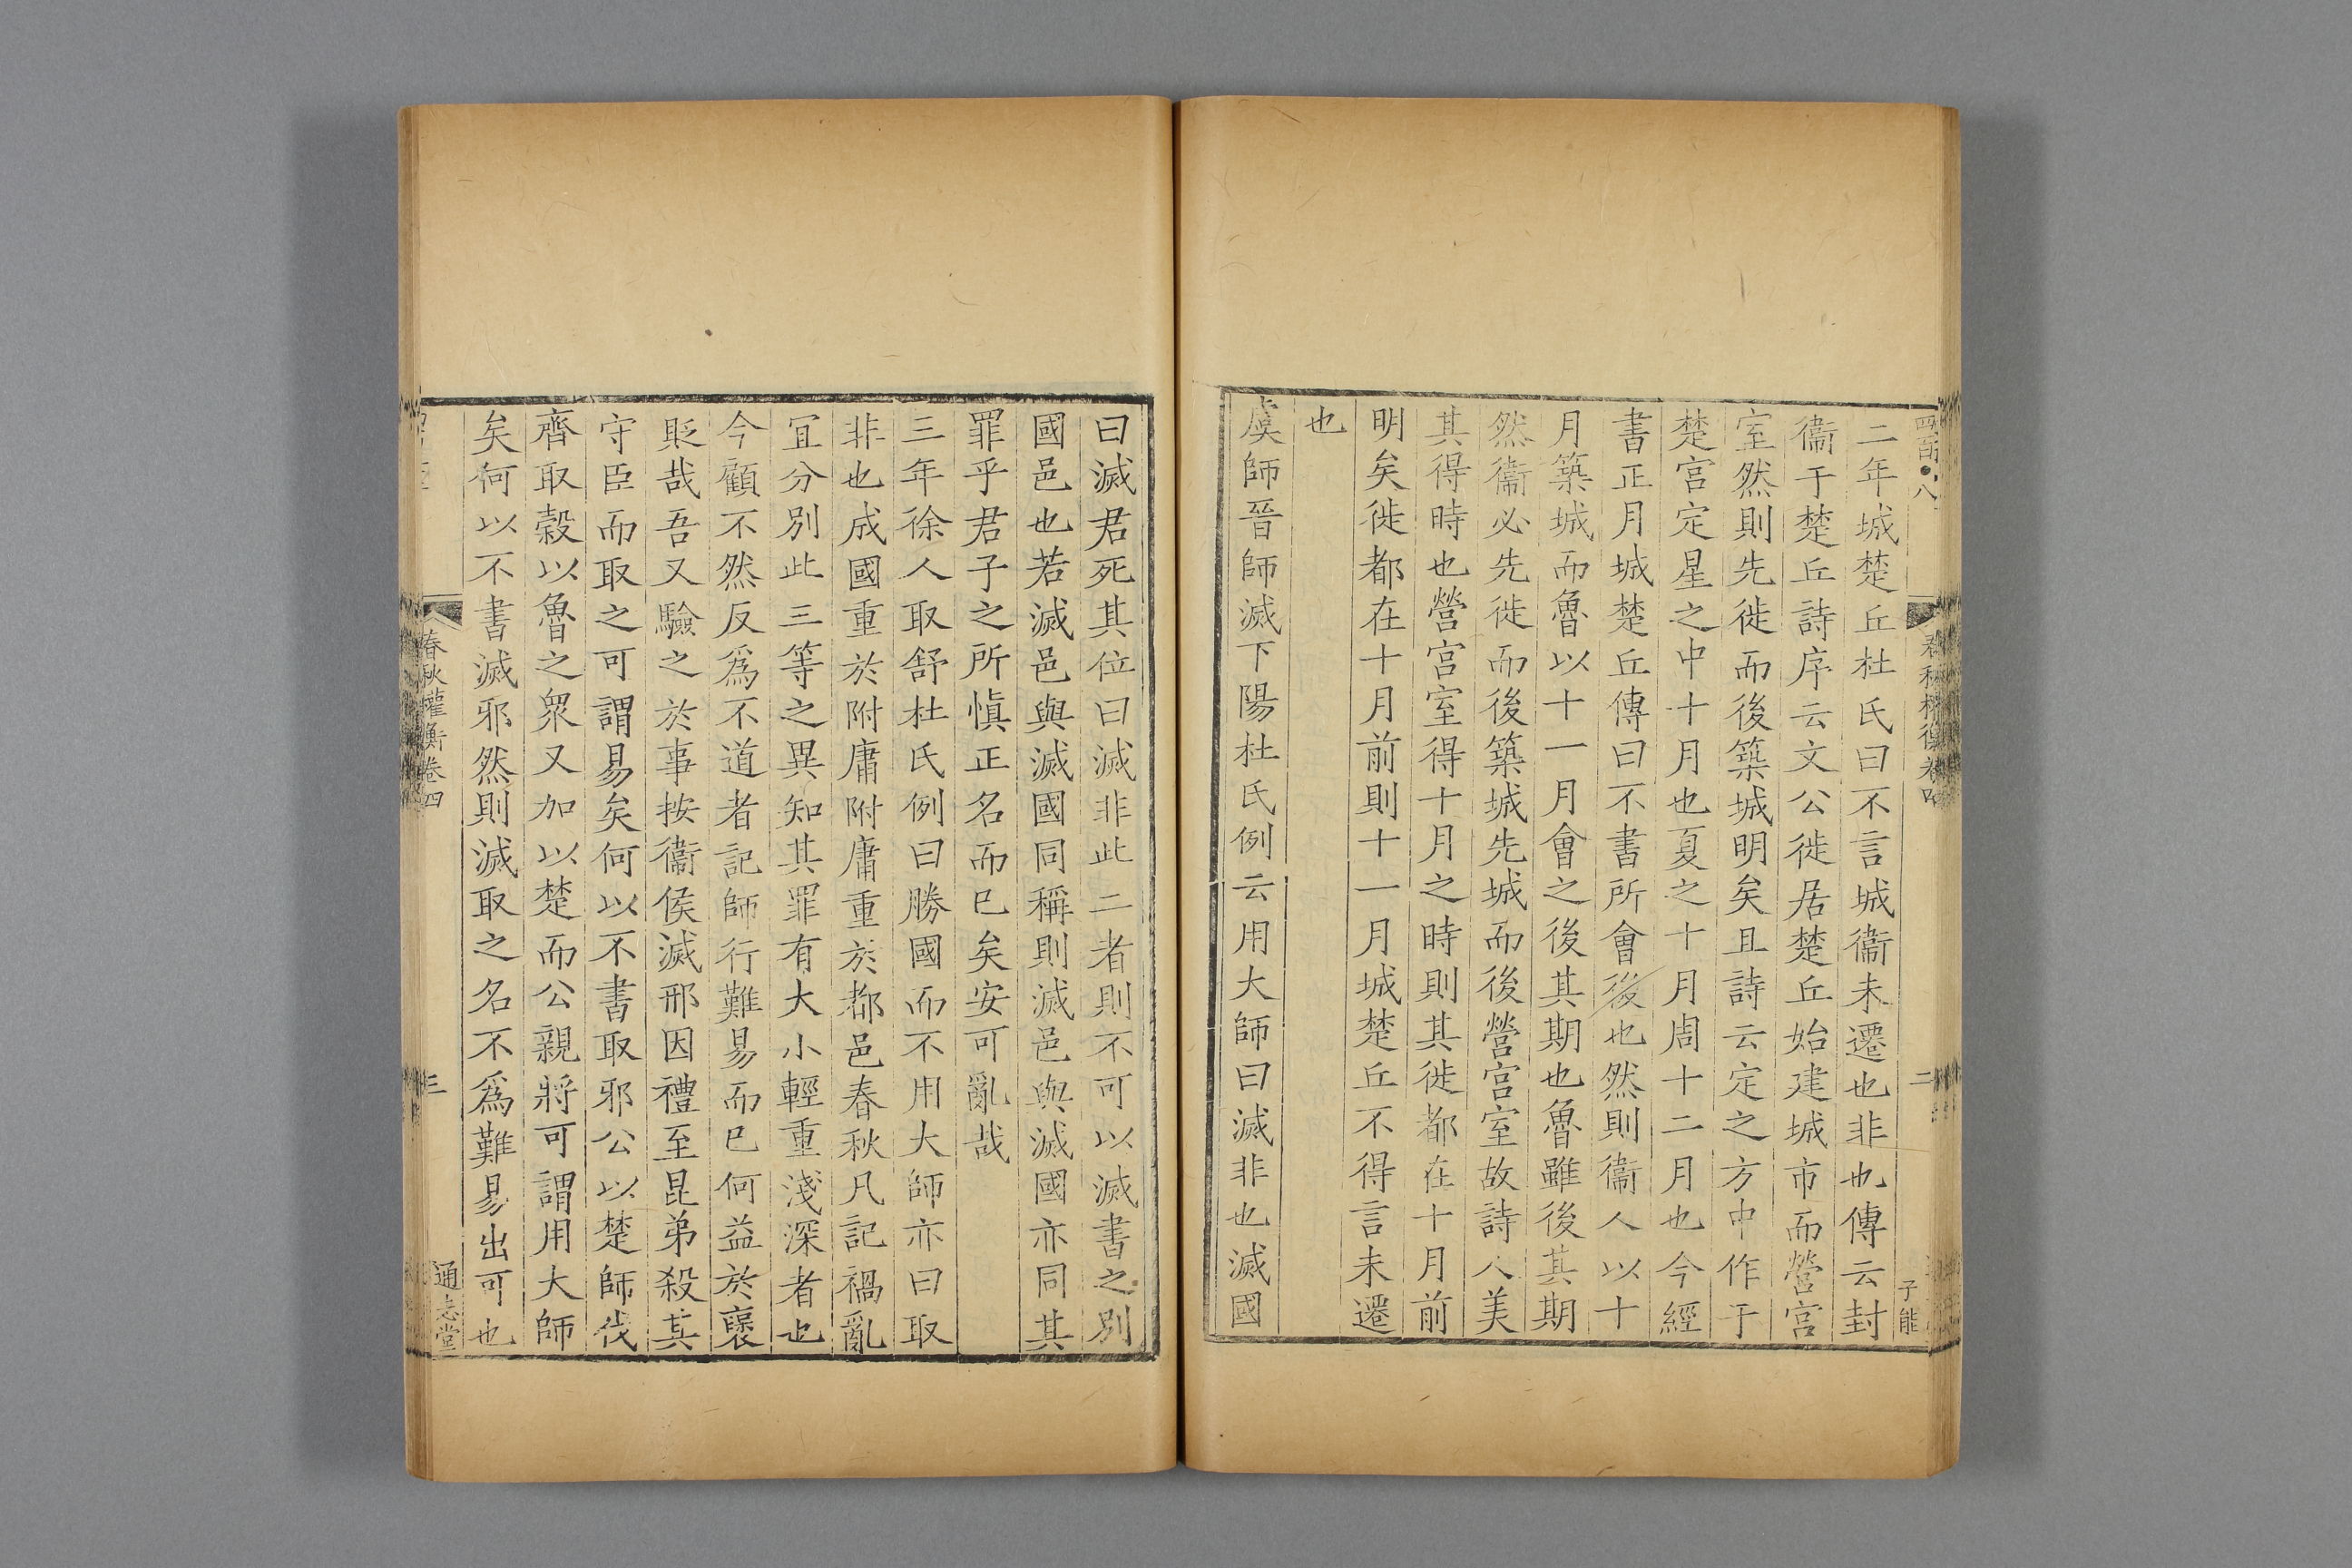 二年城楚丘杜氏曰不言城衞未遷也非也傳云封
衞于楚丘詩序云文公徙居楚丘始建城市而營宮
室然則先徙而後築城明矣且詩云定之方中作于
楚宮定星之中十月也夏之十月周十二月也今經
書正月城楚丘傳曰不書所會後也然則衞人以十
月築城而魯以十一月會之後其期也魯雖後其期
然衞必先徙而後築城先城而後營宮室故詩人美
其得時也營宮室得十月之時則其徙都在十月前
明矣徙都在十月前則十一月城楚丘不得言未遷
也
虞師晉師滅下陽杜氏例云用大師曰滅非也滅國
二
子能
曰滅君死其位曰滅非此二者則不可以滅書之別
國邑也若滅邑與滅國同稱則滅邑與滅國亦同其
罪乎君子之所愼正名而已矣安可亂哉
三年徐人取舒杜氏例曰勝國而不用大師亦曰取
非也成國重於附庸附庸重於都邑春秋凡記禍亂
宜分別此三等之異知其罪有大小輕重淺深者也
今顧不然反爲不道者記師行難易而已何益於襃
貶哉吾又驗之於事按衞侯滅邢因禮至昆弟殺其
守臣而取之可謂易矣何以不書取邪公以楚師伐
齊取穀以魯之衆又加以楚而公親將可謂用大師
矣何以不書滅邪然則滅取之名不爲難易出可也
春秋權衡卷四
三
通志堂